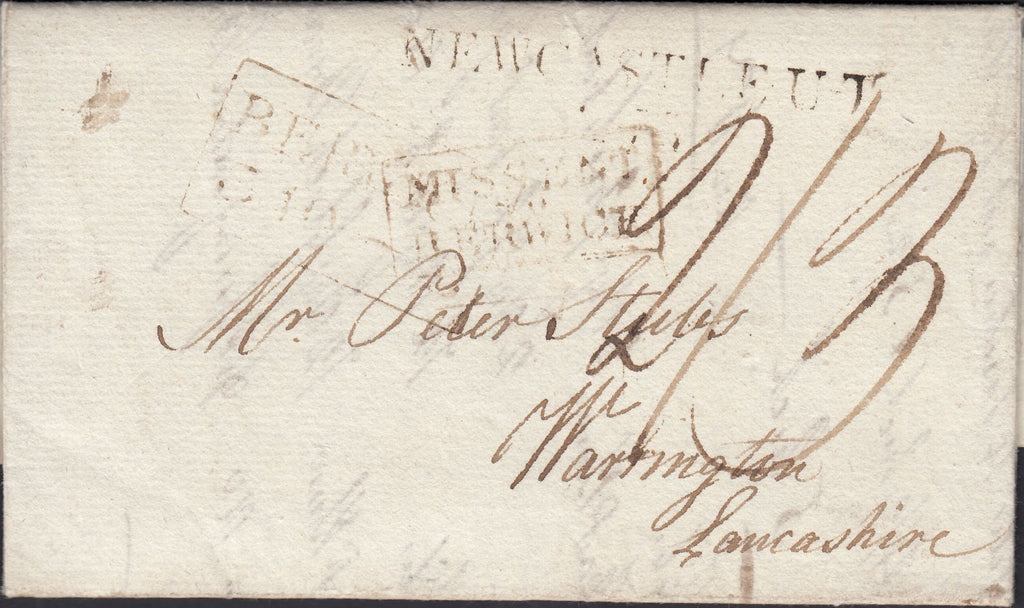 NEWCASTLE U T
MISSENT.
TO
BERWICK
2/3
Mr. Peter Stubs
Warrington
Lancashire